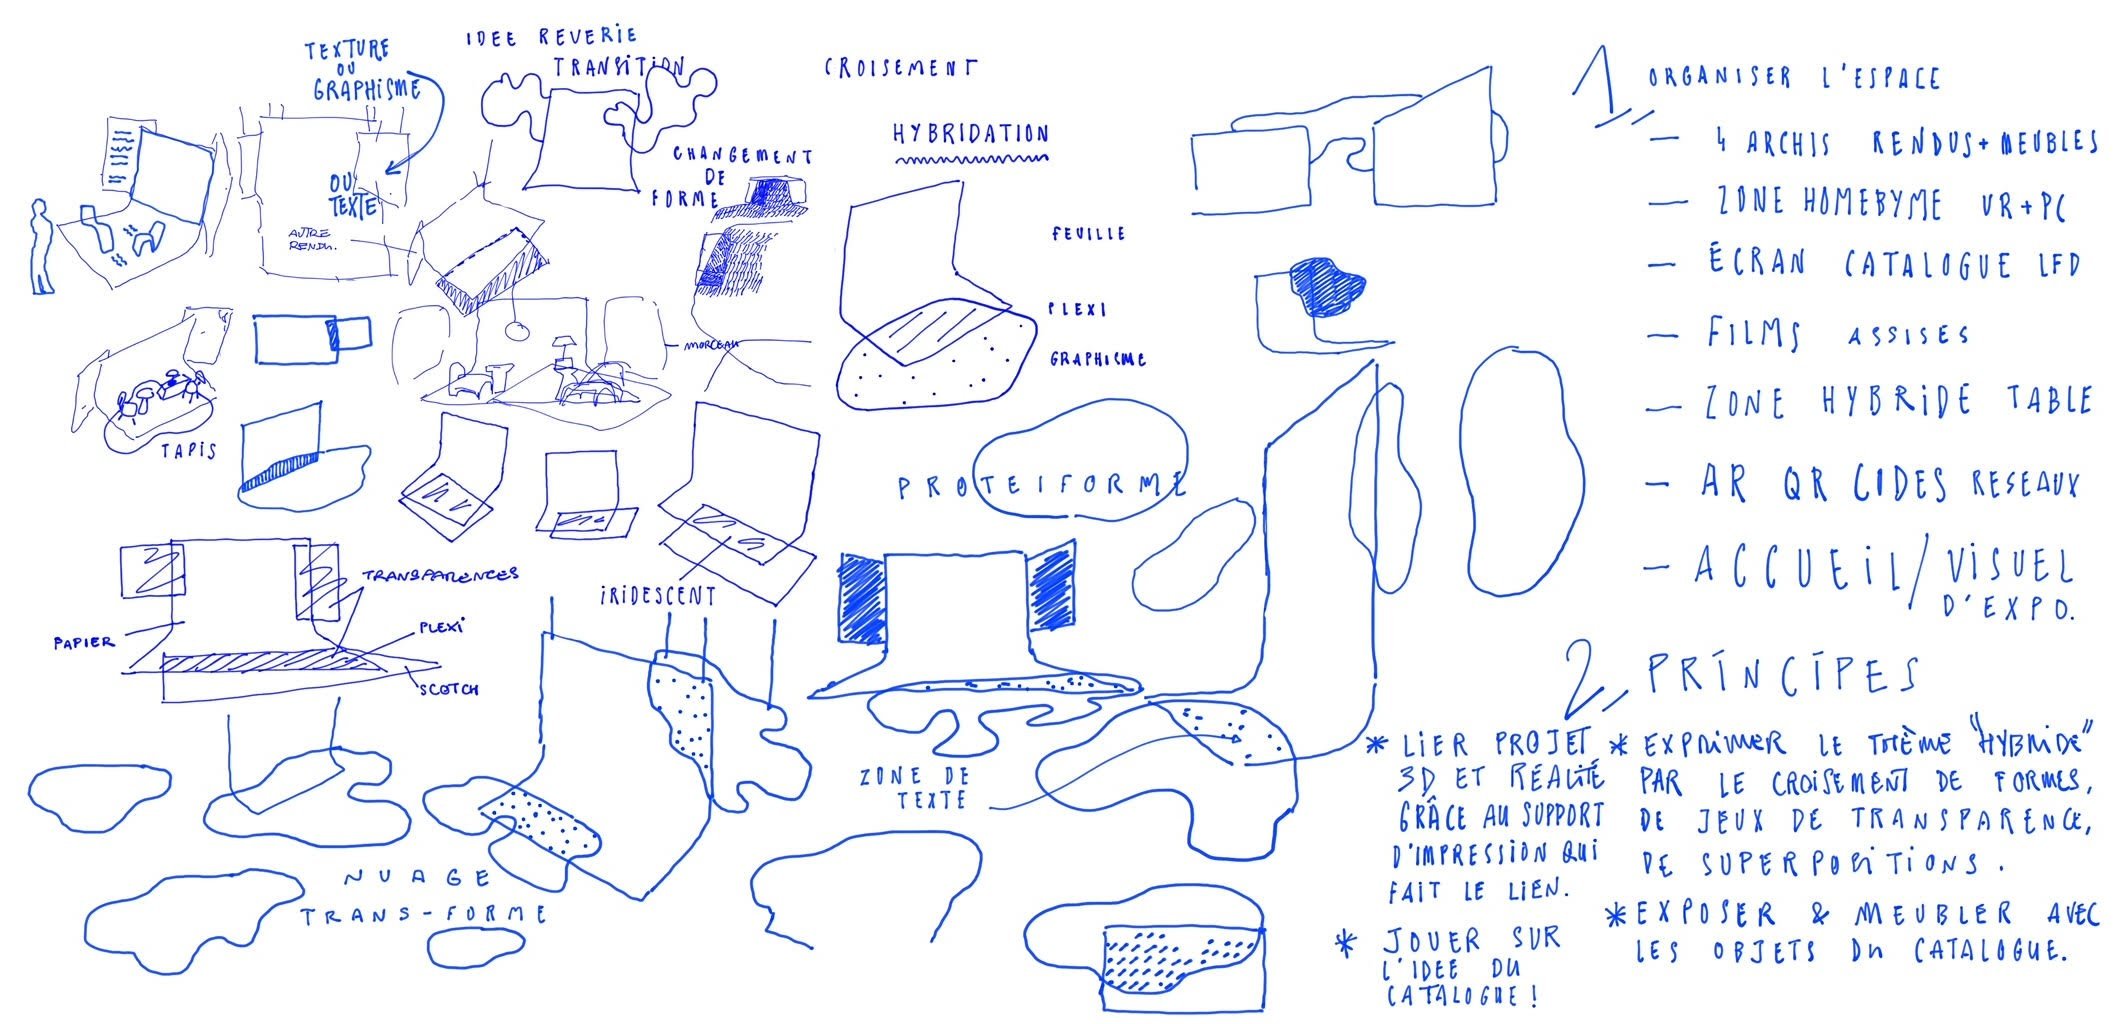 TEXTURE
OU
GRAPHISME
IDEE REVERIE
TRANSITION
CROISEMENT
HYBRIDATION
CHANGEMENT
DE
FORME
OU
TEXTE
AUTRE
RENDU.
FEUILLE
PLEXI
GRAPHISME
MORCEAU
TAPIS
PROTEIFORME
TRANSPARENCES
IRIDESCENT
PAPIER
PLEXI
SCOTCH
ZONE DE
TEXTE
NUAGE
TRANS-FORME
1 ORGANISER L'ESPACE
— 4 ARCHIS RENDUS+MEUBLES
— ZONE HOMEBYME VR+PC
— ÉCRAN CATALOGUE LFD
— FILMS ASSISES
— ZONE HYBRIDE TABLE
— AR QR CODES RESEAUX
— ACCUEIL/VISUEL
D'EXPO.
2 PRINCIPES
* LIER PROJET
3D ET RÉALITÉ
GRÂCE AU SUPPORT
D'IMPRESSION QUI
FAIT LE LIEN.
* JOUER SUR
L'IDEE DU
CATALOGUE!
* EXPRIMER LE THÈME "HYBRIDE"
PAR LE CROISEMENT DE FORMES,
DE JEUX DE TRANSPARENCE,
DE SUPERPOSITIONS.
* EXPOSER & MEUBLER AVEC
LES OBJETS DU CATALOGUE.